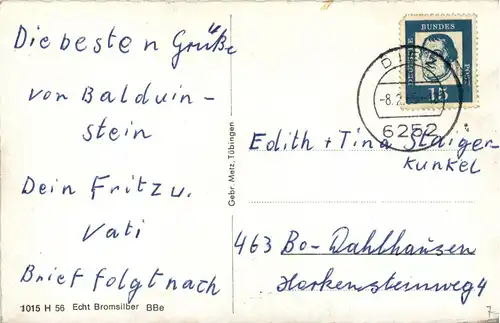 Die besten Grüße
von Balduin-
stein
Dein Fritz u.
Vati
Brief folgt nach
1015 H 56 Echt Bromsilber BBe
Gebr. Metz, Tübingen
DEUTSCHE BUNDES POST
15
DIEZ
-8.2.
6252
Edith + Tina Staiger-
Kunkel
463 Bo-Dahlhausen
Horkensteinweg 4
7